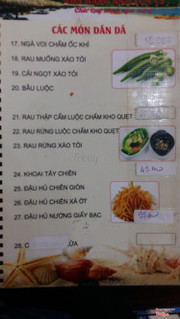 CÁC MÓN DÂN DÃ
17. NGÀ VOI CHẤM ỐC KHỈ
18. RAU MUỐNG XÀO TỎI
19. CẢI NGỌT XÀO TỎI
20. BẦU LUỘC
21. RAU THẬP CẨM LUỘC CHẤM KHO QUẸT
22. RAU RỪNG LUỘC CHẤM KHO QUẸT
23. RAU RỪNG XÀO TỎI
24. KHOAI TÂY CHIÊN
25. ĐẬU HỦ CHIÊN GIÒN
26. ĐẬU HỦ CHIÊN XẢ ỚT
27. ĐẬU HỦ NƯỚNG GIẤY BẠC
28.